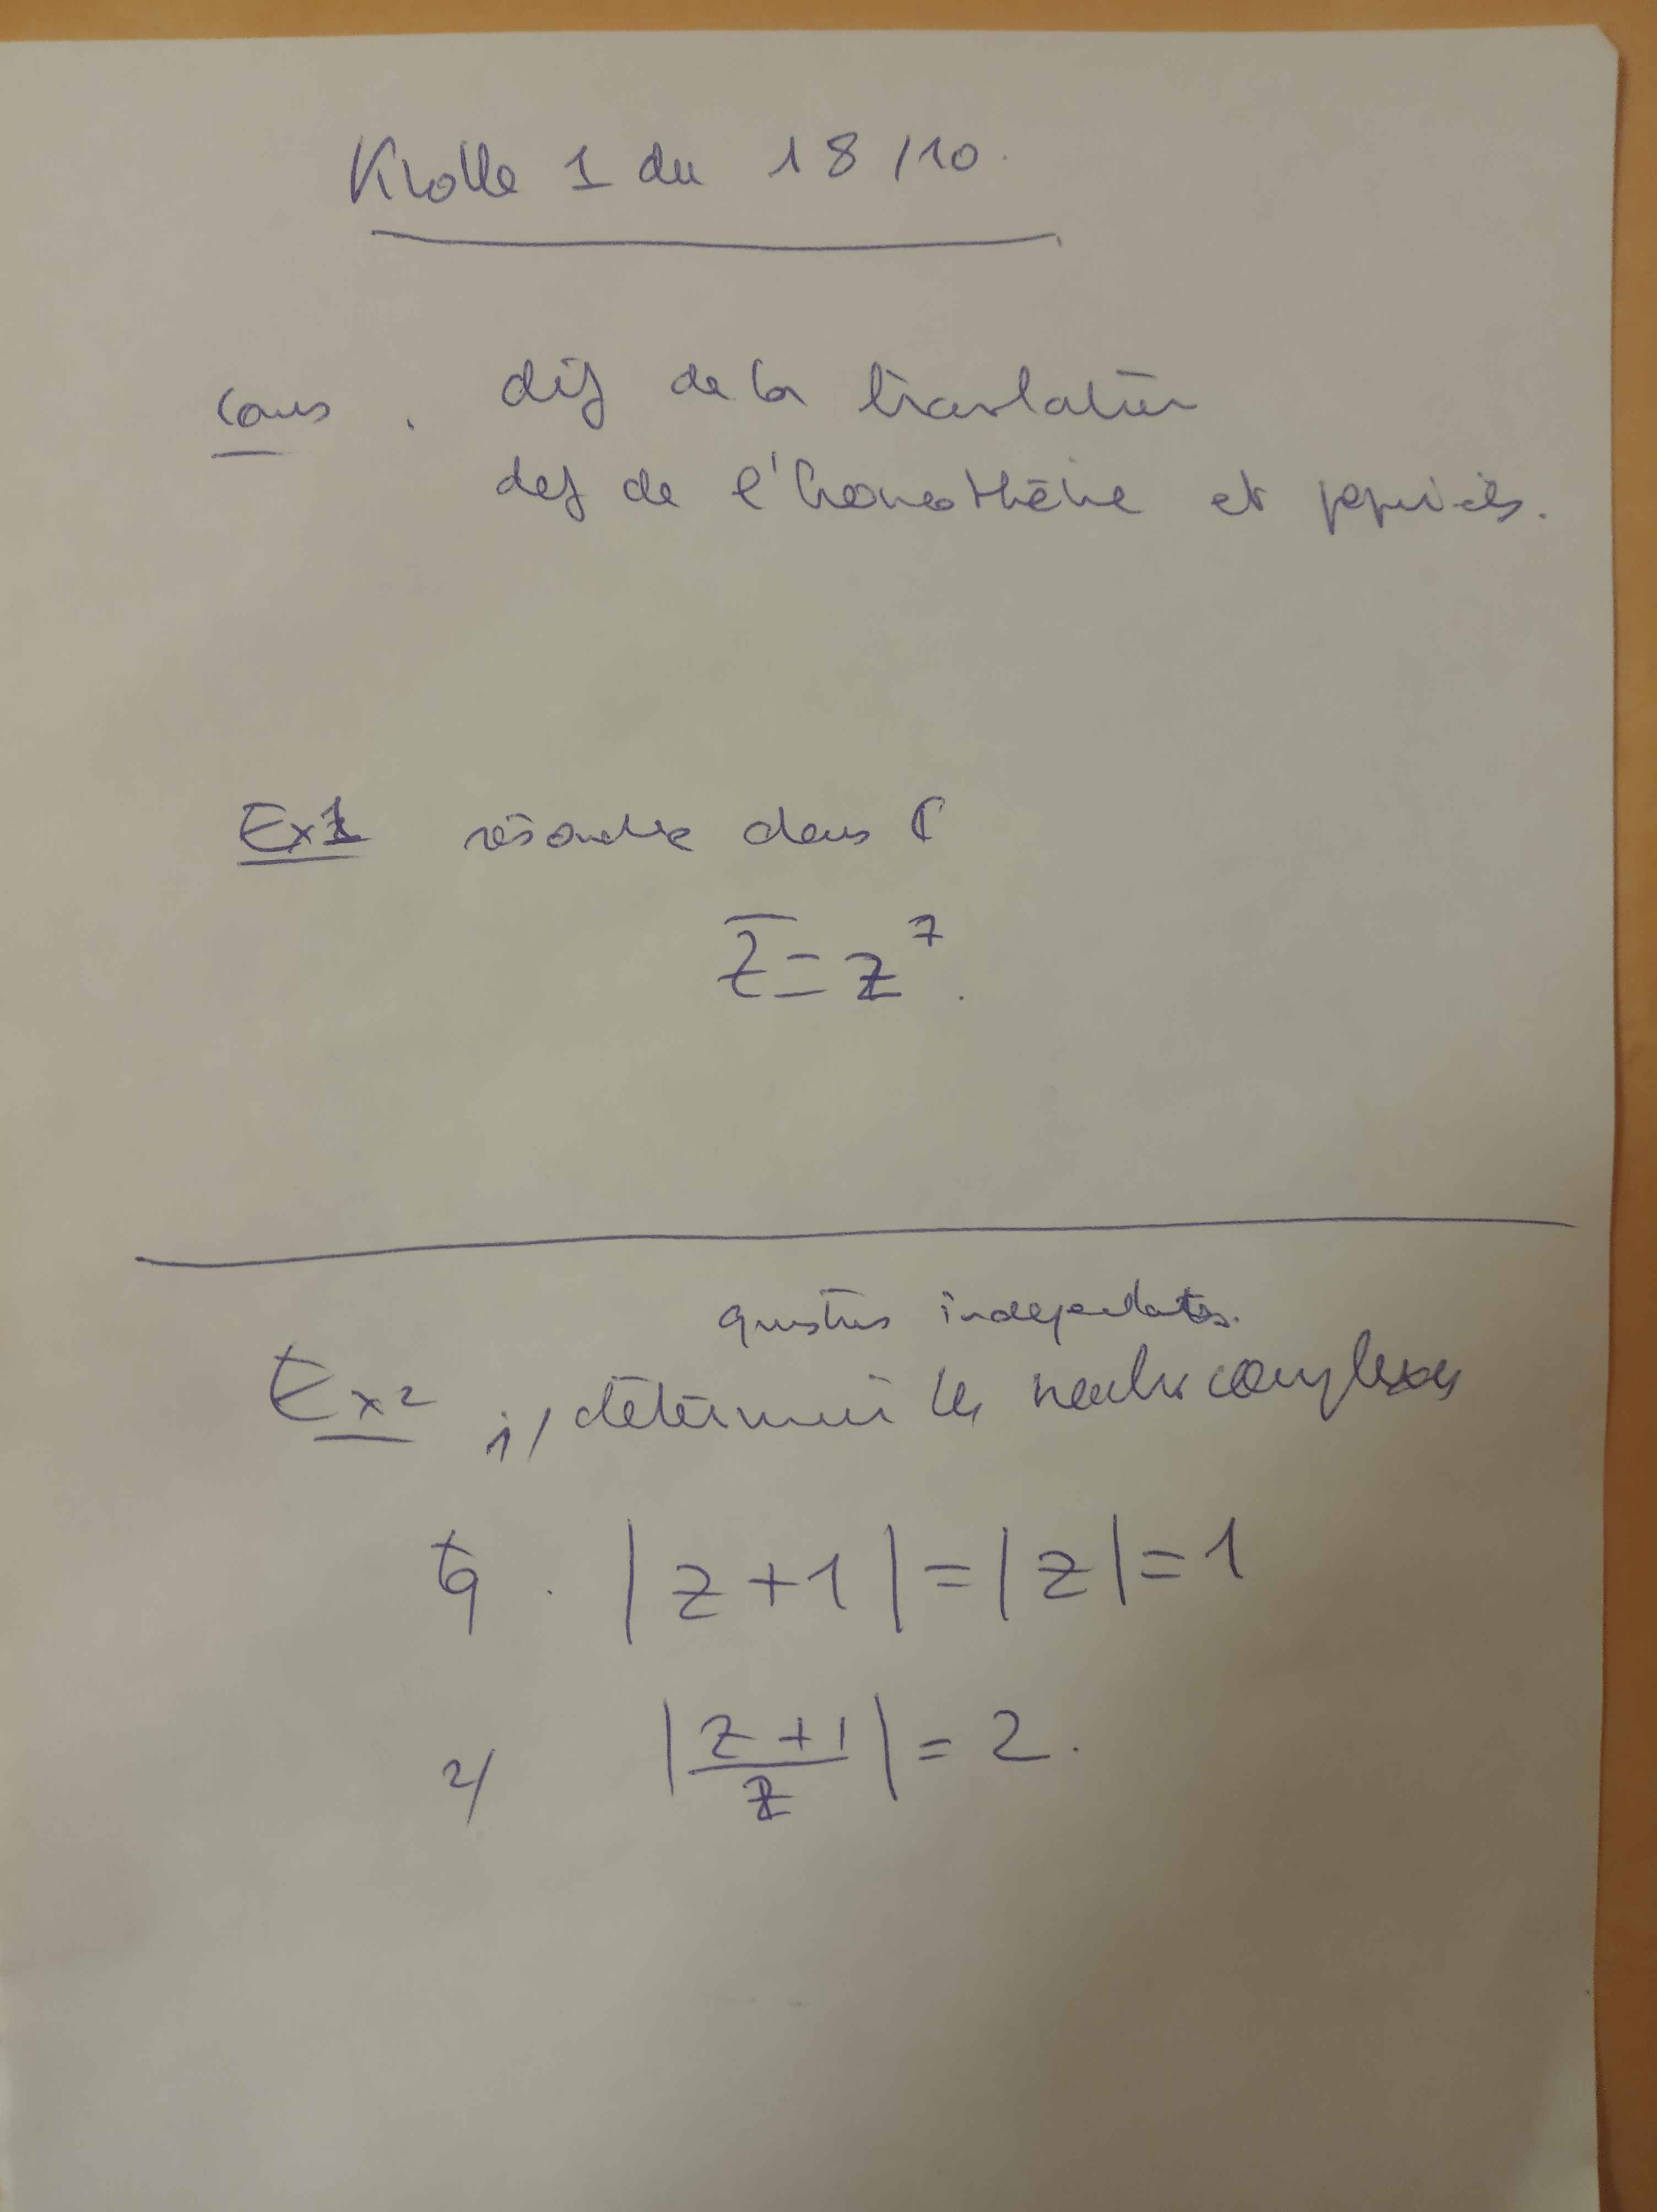 Kholle 1 du 18/10.
Cours . déf de la translation
def de l'homothétie et propriétés.
Ex1 résoudre dans ℂ
z̅ = z⁷.
questions indépendantes.
Ex2 1/ déterminer les nombres complexes
tq . |z+1| = |z| = 1
2/ |(z+1)/z| = 2.